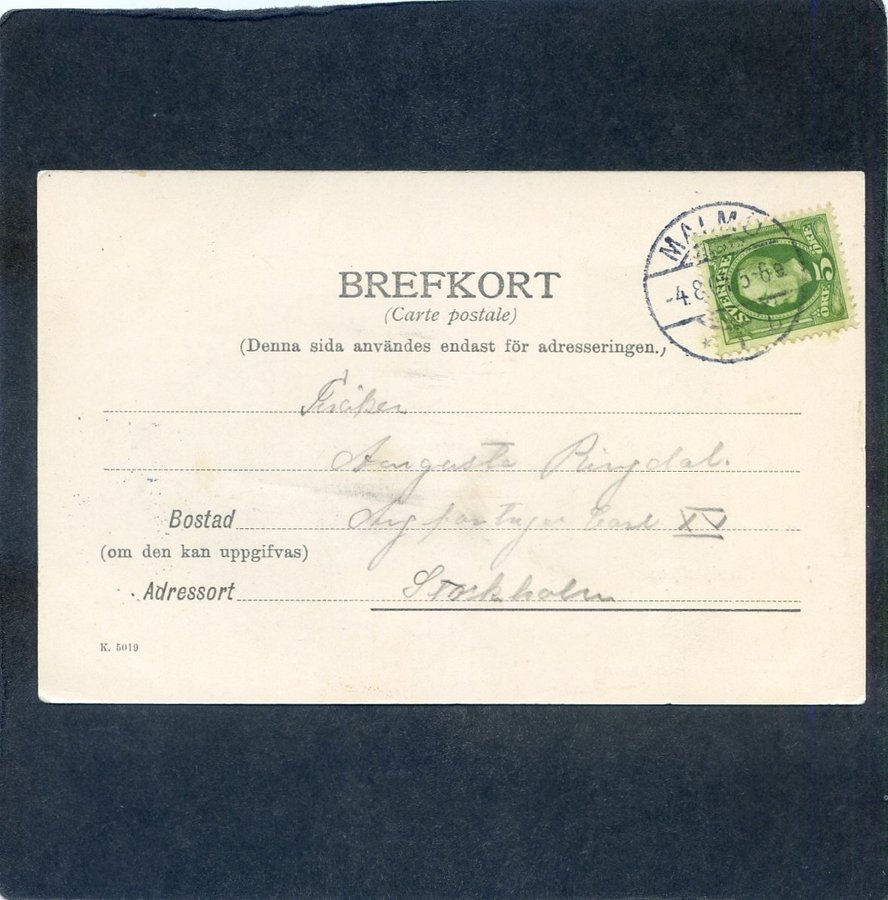 MALMÖ
-4.8
SVERIGE
5
ÖRE
BREFKORT
(Carte postale)
(Denna sida användes endast för adresseringen.)
Fröken
Augusta Ringdal.
Carl XV
Bostad
(om den kan uppgifvas)
Adressort Stockholm
K. 5019